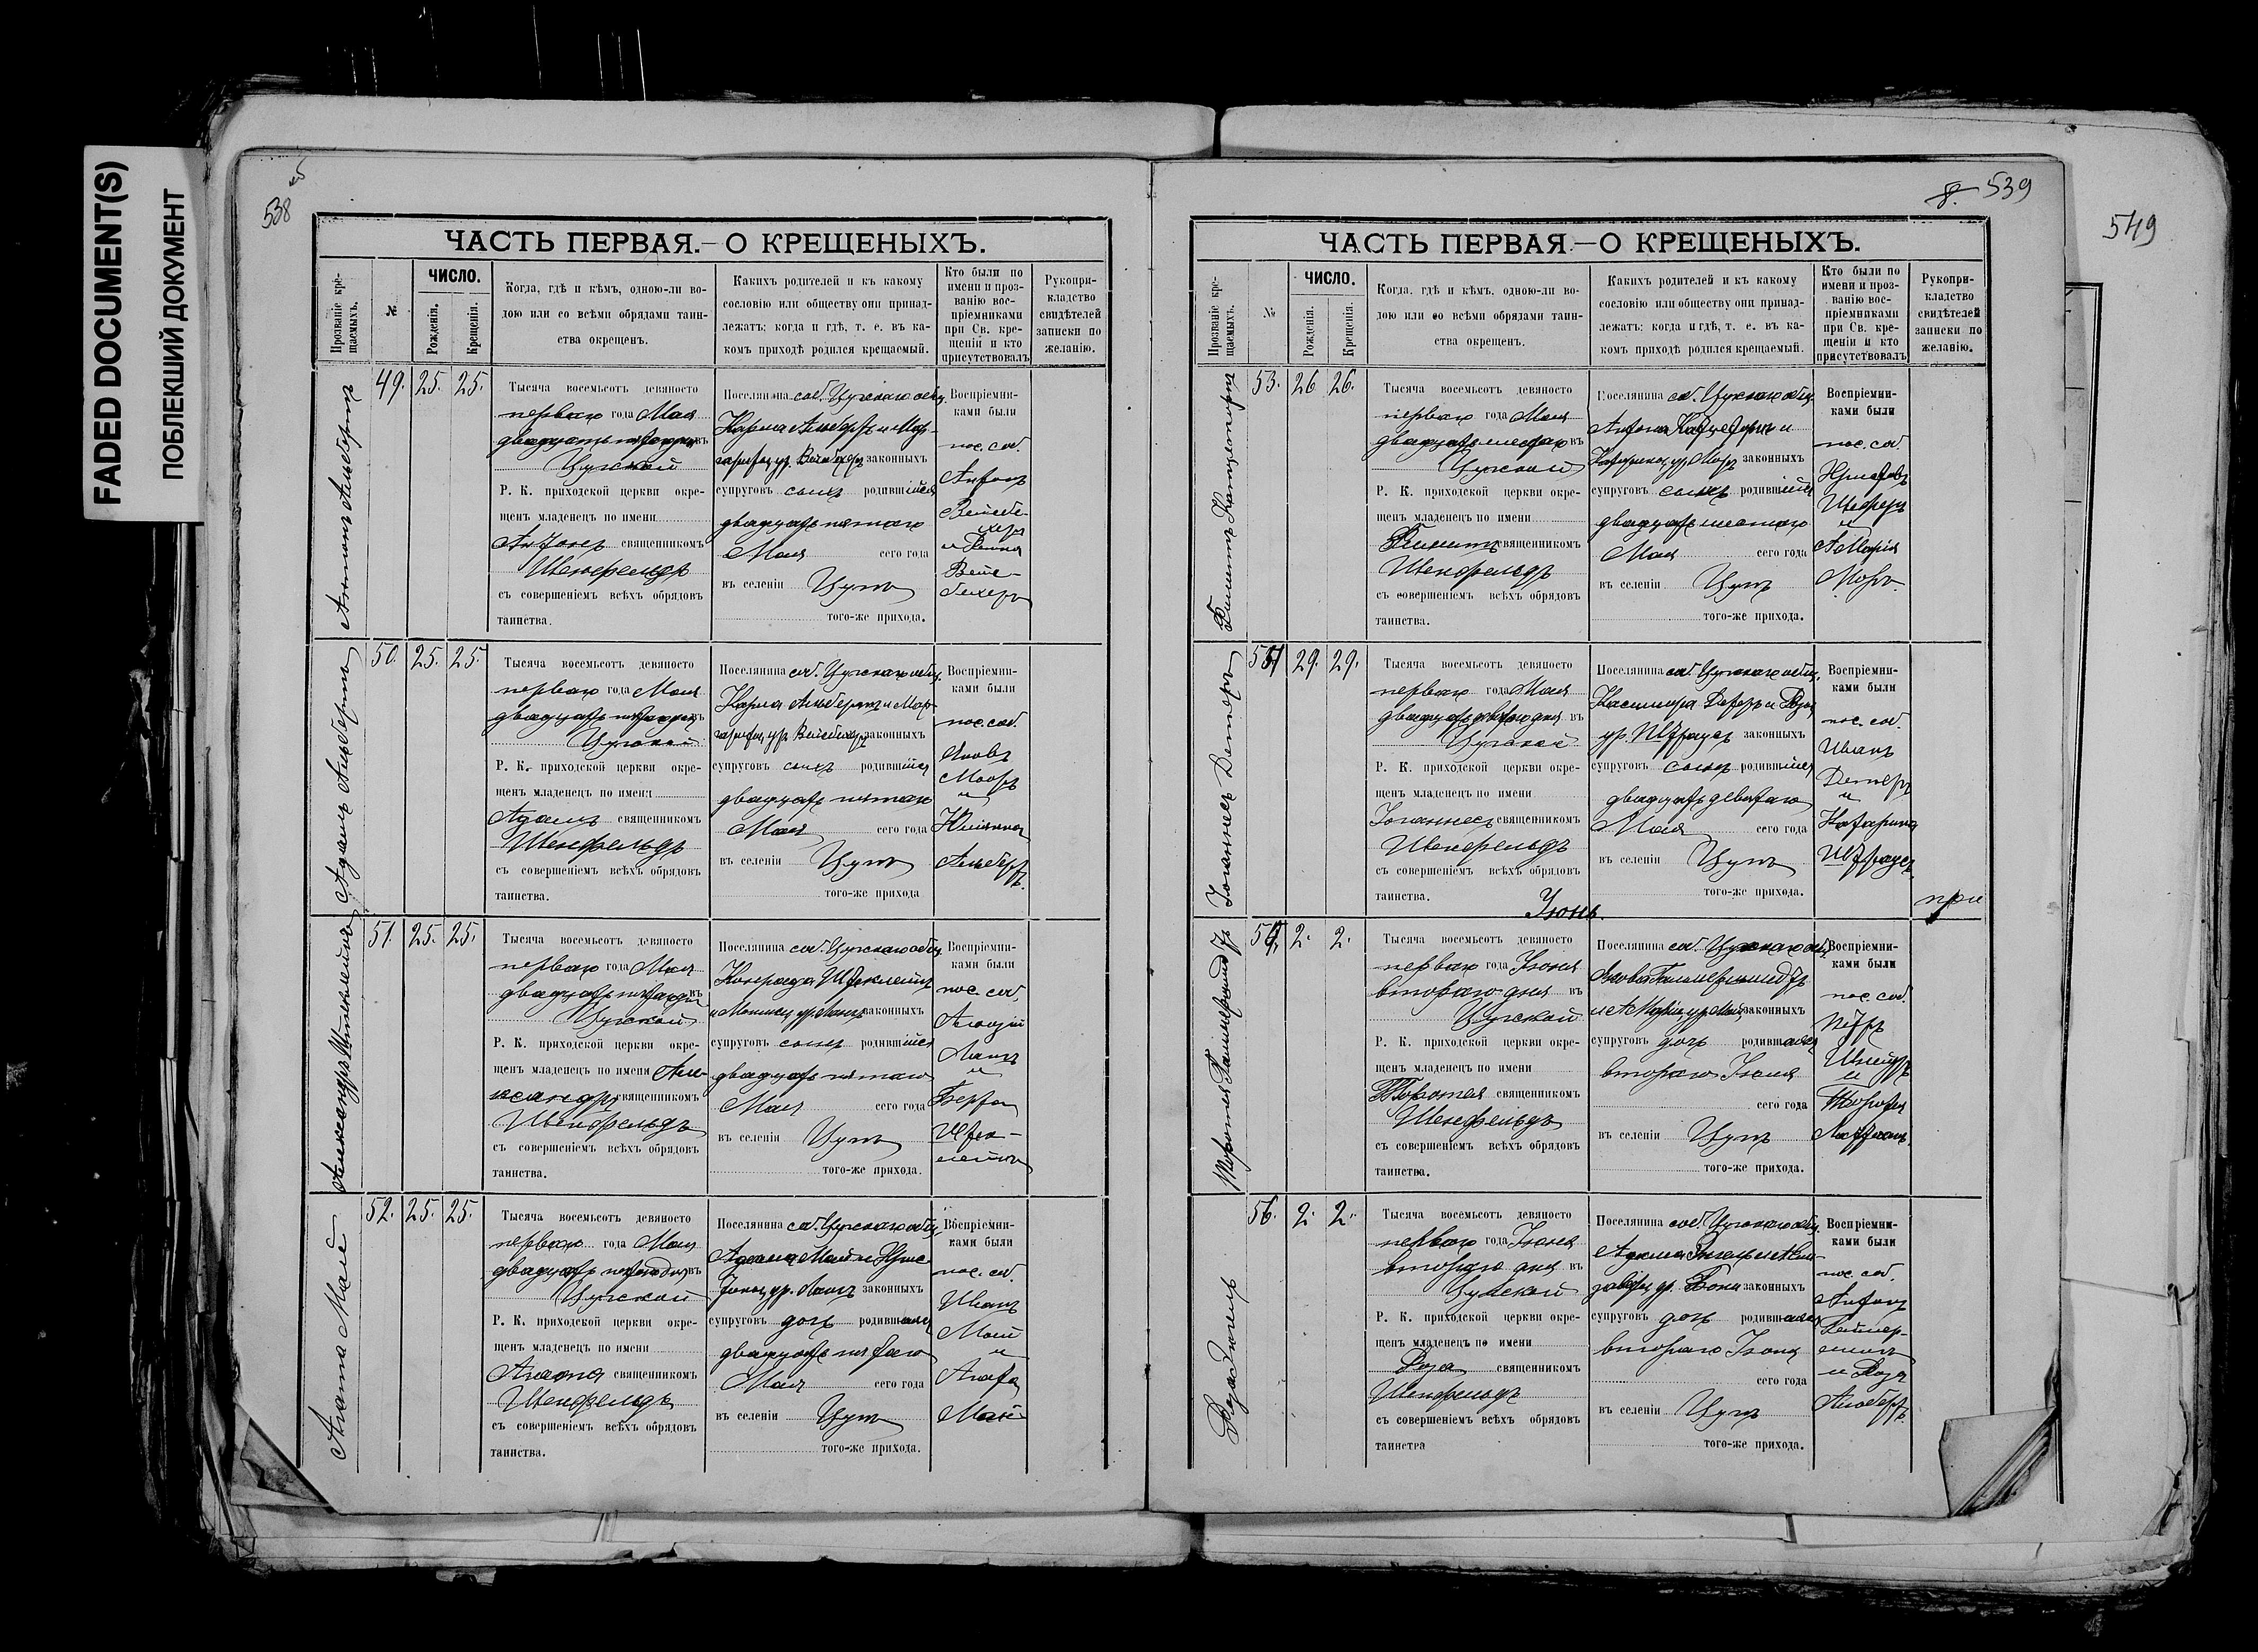 FADED DOCUMENT(S)
ПОБЛЕКШИЙ ДОКУМЕНТ
538
ЧАСТЬ ПЕРВАЯ.—О КРЕЩЕНЫХЪ.
Прозваніе кре-
щаемыхъ.
№
ЧИСЛО.
Рожденія.
Крещенія.
Когда, гдѣ и кѣмъ, одною-ли во-
дою или со всѣми обрядами таин-
ства окрещенъ.
Какихъ родителей и къ какому
сословію или обществу они принад-
лежатъ; когда и гдѣ, т. е. въ ка-
комъ приходѣ родился крещаемый.
Кто были по
имени и проз-
ванію вос-
пріемниками
при Св. кре-
щеніи и кто
присутствовалъ
Рукопри-
кладство
свидѣтелей
записки по
желанію.
Антонъ Альбертъ
49. 25. 25.
Тысяча восемьсотъ девяносто
перваго года Мая
двадцать пятаго дня въ
Цугской
Р. К. приходской церкви окре-
щенъ младенецъ по имени
Антонъ священникомъ
Шенфельдъ
съ совершеніемъ всѣхъ обрядовъ
таинства.
Поселянина соб. Цугскаго общ.
Карла Альбертъ и Мар-
гариты ур. законныхъ
супруговъ сынъ родившійся
двадцать пятаго
Мая сего года
въ селеніи Цугъ
того-же прихода.
Воспріемни-
ками были
пос. соб.
Антонъ
Вейсбе-
херъ
и
Вейс-
бехеръ
Адамъ Альбертъ
50. 25. 25.
Тысяча восемьсотъ девяносто
перваго года Мая
двадцать пятаго дня въ
Цугской
Р. К. приходской церкви окре-
щенъ младенецъ по имени
Адамъ священникомъ
Шенфельдъ
съ совершеніемъ всѣхъ обрядовъ
таинства.
Поселянина соб. Цугскаго общ.
Карла Альбертъ и Мар-
гариты ур. законныхъ
супруговъ сынъ родившійся
двадцать пятаго
Мая сего года
въ селеніи Цугъ
того-же прихода
Воспріемни-
ками были
пос. соб.
Яковъ
Мооръ
и
Юліанна
Альбертъ.
Александръ Штеклейнъ
51. 25. 25.
Тысяча восемьсотъ девяносто
перваго года Мая
двадцать пятаго дня въ
Цугской
Р. К. приходской церкви окре-
щенъ младенецъ по имени Але-
ксандръ священникомъ
Шенфельдъ
съ совершеніемъ всѣхъ обрядовъ
таинства.
Поселянина соб. Цугскаго общ.
Конрада Штеклейнъ
и Моники ур. Лангъ законныхъ
супруговъ сынъ родившійся
двадцать пятаго
Мая сего года
въ селеніи Цугъ
того-же прихода.
Воспріемни-
ками были
пос. соб.
Алоизій
Лангъ
и
Берта
Штек-
лейнъ
Агата Май
52. 25. 25.
Тысяча восемьсотъ девяносто
перваго года Мая
двадцать пятаго дня въ
Цугской
Р. К. приходской церкви окре-
щенъ младенецъ по имени
Агата священникомъ
Шенфельдъ
съ совершеніемъ всѣхъ обрядовъ
таинства.
Поселянина соб. Цугскаго общ.
Адама Май и Крис-
тины ур. Лангъ законныхъ
супруговъ дочь родившаяся
двадцать пятаго
Мая сего года
въ селеніи Цугъ
того-же прихода.
Воспріемни-
ками были
пос. соб.
Иванъ
Май
и
Агата
Май
539
549
ЧАСТЬ ПЕРВАЯ—О КРЕЩЕНЫХЪ.
Прозваніе кре-
щаемыхъ.
№
ЧИСЛО.
Рожденія.
Крещенія.
Когда, гдѣ и кѣмъ, одною-ли во-
дою или со всѣми обрядами таин-
ства окрещенъ.
Какихъ родителей и къ какому
сословію или обществу они принад-
лежатъ; когда и гдѣ, т. е. въ ка-
комъ приходѣ родился крещаемый.
Кто были по
имени и проз-
ванію вос-
пріемниками
при Св. кре-
щеніи и кто
присутствовалъ
Рукопри-
кладство
свидѣтелей
записки по
желанію.
53. 26 26.
Тысяча восемьсотъ девяносто
перваго года Мая
двадцать шестаго въ
Цугской
Р. К. приходской церкви окре-
щенъ младенецъ по имени
священникомъ
Шенфельдъ
съ совершеніемъ всѣхъ обрядовъ
таинства.
Поселянина соб. Цугскаго общ.
Антона и
Катарины ур. Моръ законныхъ
супруговъ сынъ родившійся
двадцать шестаго
Мая сего года
въ селеніи Цугъ
того-же прихода.
Воспріемни-
ками были
пос. соб.
и
А Марія
Моръ.
Іоганнесъ Детлеръ
54 29. 29.
Тысяча восемьсотъ девяносто
перваго года Мая
двадцать девятаго дня въ
Цугской
Р. К. приходской церкви окре-
щенъ младенецъ по имени
Іоганнесъ священникомъ
Шенфельдъ
съ совершеніемъ всѣхъ обрядовъ
таинства.
Поселянина соб. Цугскаго общ.
Касимира и Розы
ур. Штраусъ законныхъ
супруговъ сынъ родившійся
двадцать девятаго
Мая сего года
въ селеніи Цугъ
того-же прихода.
Воспріемни-
ками были
пос. соб.
Иванъ
Детлеръ
и
Катарина
Штраусъ.
при
Іюнь.
2. 2.
Тысяча восемьсотъ девяносто
перваго года Іюня
втораго дня въ
Цугской
Р. К. приходской церкви окре-
щенъ младенецъ по имени
священникомъ
Шенфельдъ
съ совершеніемъ всѣхъ обрядовъ
таинства.
Поселянина соб. Цугскаго общ.
Якова Гаммершмидтъ
и А Маріи ур. законныхъ
супруговъ дочь родившаяся
втораго Іюня
сего года
въ селеніи Цугъ
того-же прихода.
Воспріемни-
ками были
пос. соб.
Петръ
Шнейдръ
и
Роза Энгель
56. 2. 2.
Тысяча восемьсотъ девяносто
перваго года Іюня
втораго дня въ
Цугской
Р. К. приходской церкви окре-
щенъ младенецъ по имени
Роза священникомъ
Шенфельдъ
съ совершеніемъ всѣхъ обрядовъ
таинства
Поселянина соб. Цугскаго общ.
Адама Энгель и Ели-
заветы ур. законныхъ
супруговъ дочь родившаяся
втораго Іюня
сего года
въ селеніи Цугъ
того-же прихода.
Воспріемни-
ками были
пос. соб.
Антонъ
и Роза
Альбертъ.